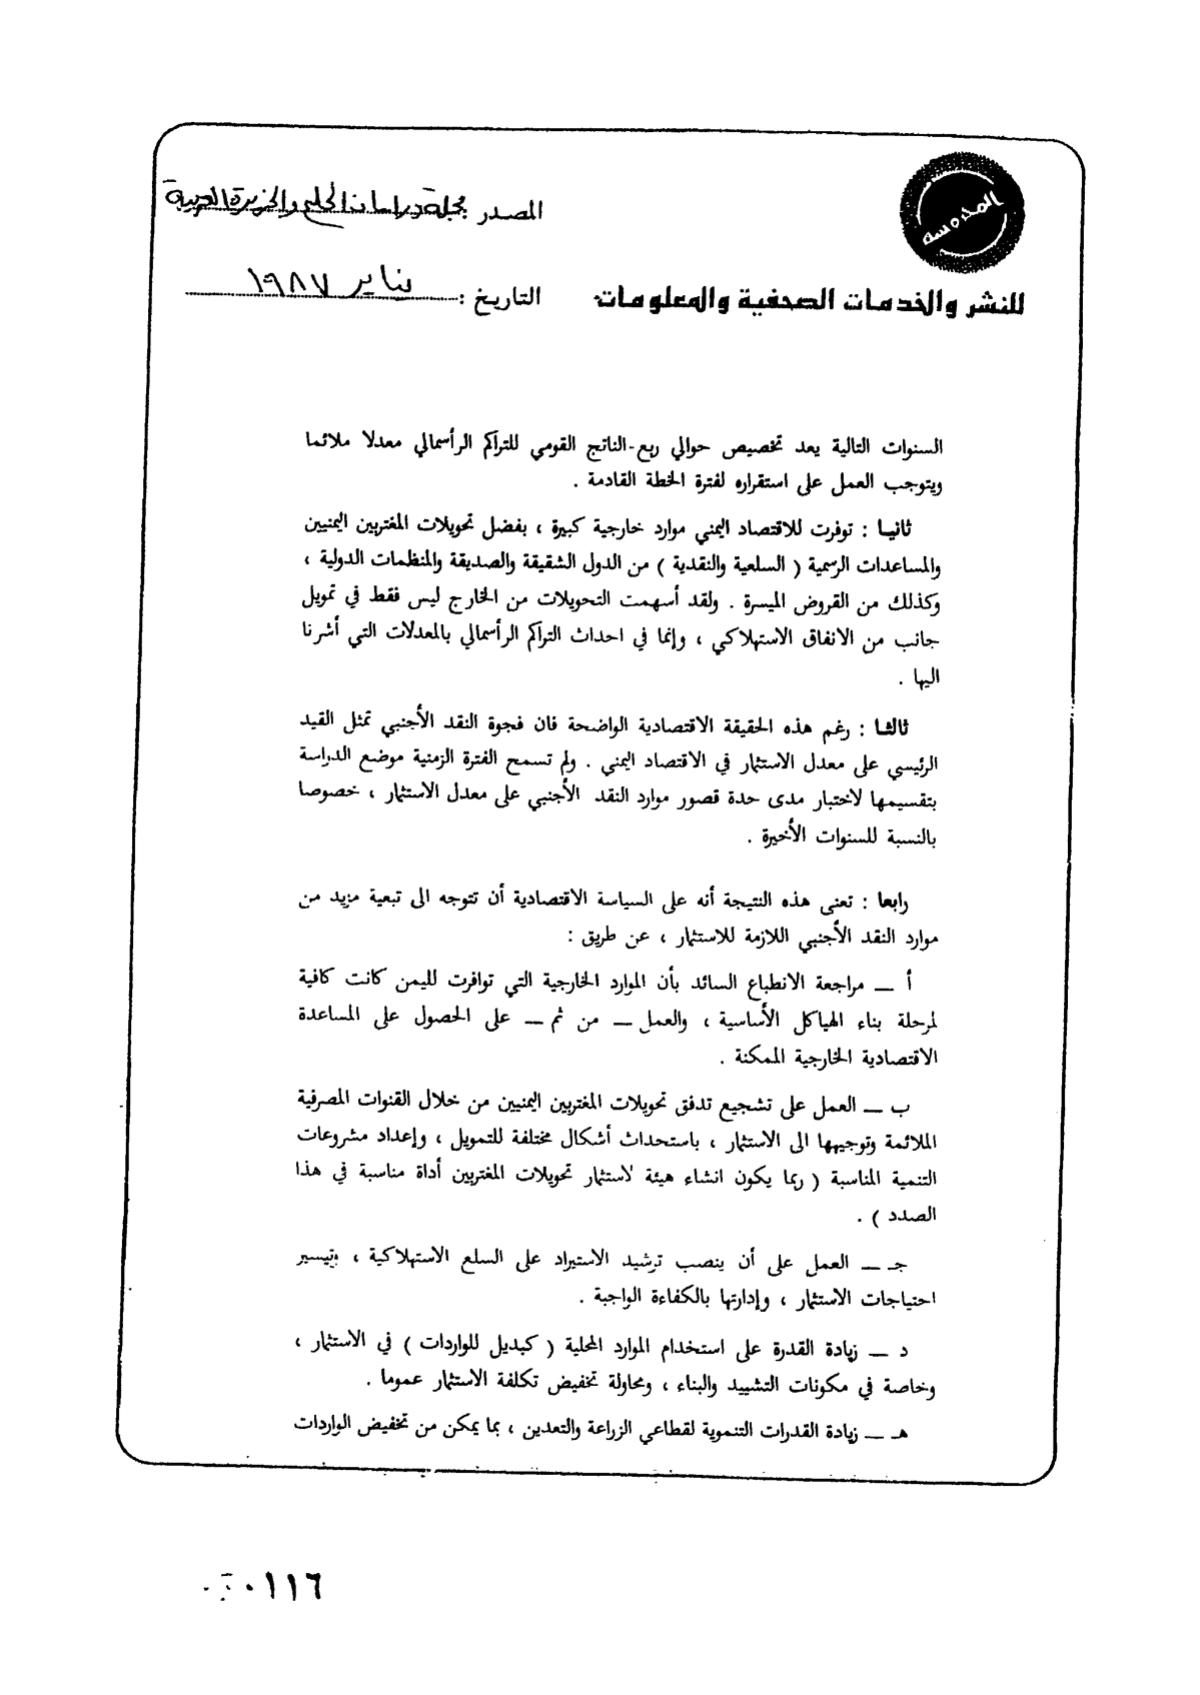 المدوسة
المصدر : مجلة دراسات الخليج والجزيرة العربية
للنشر والخدمات الصحفية والمعلومات
التاريخ : يناير ١٩٨٧
السنوات التالية يعد تخصيص حوالي ربع-الناتج القومي للتراكم الرأسمالي معدلا ملائما
ويتوجب العمل على استقراره لفترة الخطة القادمة .
ثانيا : توفرت للاقتصاد اليمني موارد خارجية كبيرة ، بفضل تحويلات المغتربين اليمنيين
والمساعدات الرسمية ( السلعية والنقدية ) من الدول الشقيقة والصديقة والمنظمات الدولية ،
وكذلك من القروض الميسرة . ولقد أسهمت التحويلات من الخارج ليس فقط في تمويل
جانب من الانفاق الاستهلاكي ، وإنما في احداث التراكم الرأسمالي بالمعدلات التي أشرنا
اليها .
ثالثا : رغم هذه الحقيقة الاقتصادية الواضحة فان فجوة النقد الأجنبي تمثل القيد
الرئيسي على معدل الاستثمار في الاقتصاد اليمني . ولم تسمح الفترة الزمنية موضع الدراسة
بتقسيمها لاختبار مدى حدة قصور موارد النقد الأجنبي على معدل الاستثمار ، خصوصا
بالنسبة للسنوات الأخيرة .
رابعا : تعنى هذه النتيجة أنه على السياسة الاقتصادية أن تتوجه الى تبعية مزيد من
موارد النقد الأجنبي اللازمة للاستثمار ، عن طريق :
أ ــ مراجعة الانطباع السائد بأن الموارد الخارجية التي توافرت لليمن كانت كافية
لمرحلة بناء الهياكل الأساسية ، والعمل ــ من ثم ــ على الحصول على المساعدة
الاقتصادية الخارجية الممكنة .
ب ــ العمل على تشجيع تدفق تحويلات المغتربين اليمنيين من خلال القنوات المصرفية
الملائمة وتوجيهها الى الاستثمار ، باستحداث أشكال مختلفة للتمويل ، وإعداد مشروعات
التنمية المناسبة ( ربما يكون انشاء هيئة لاستثمار تحويلات المغتربين أداة مناسبة في هذا
الصدد ) .
جـ ــ العمل على أن ينصب ترشيد الاستيراد على السلع الاستهلاكية ، وتيسير
احتياجات الاستثمار ، وإدارتها بالكفاءة الواجبة .
د ــ زيادة القدرة على استخدام الموارد المحلية ( كبديل للواردات ) في الاستثمار ،
وخاصة في مكونات التشييد والبناء ، ومحاولة تخفيض تكلفة الاستثمار عموما .
هـ ــ زيادة القدرات التنموية لقطاعي الزراعة والتعدين ، بما يمكن من تخفيض الواردات
٠١١٦